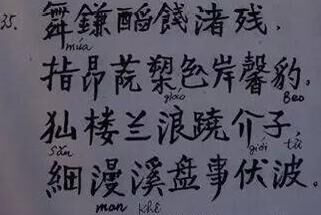 35. 舞鎌餞渚残.
múa
指昂槊岸馨豹。
giáo Beo
楼兰浪蹺介子,
săn giới tử
細漫溪盘事伏波。
man khê